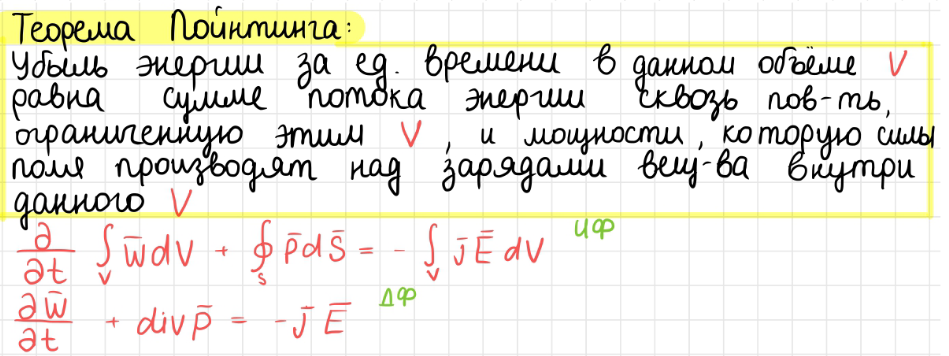 Теорема Пойнтинга:
Убыль энергии за ед. времени в данном объёме V
равна сумме потока энергии сквозь пов-ть,
ограниченную этим V, и мощности, которую силы
поля производят над зарядами вещ-ва внутри
данного V
∂/∂t ∫_V w̄dV + ∮_S P̄dS̄ = - ∫_V j̄Ē dV ИФ
∂w̄/∂t + divP̄ = -j̄Ē ДФ